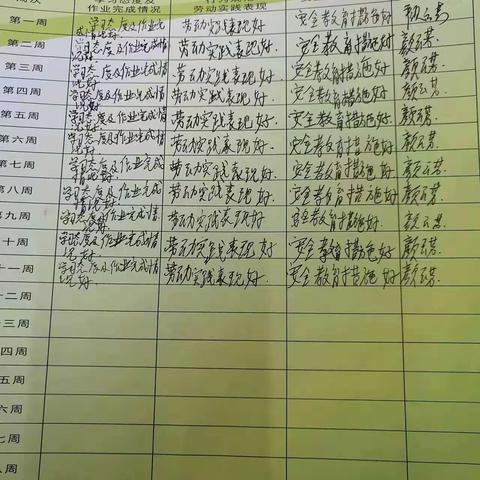 周次 学习态度及 行为规
作业完成情况 劳动实践表现
第一周 学习态度及作业完成情况好 劳动实践表现好 安全教育措施好
第二周 学习态度及作业完成情况好 劳动实践表现好 安全教育措施好
第三周 学习态度及作业完成情况好 劳动实践表现好 安全教育措施好
第四周 学习态度及作业完成情况好 劳动实践表现好 安全教育措施好
第五周 学习态度及作业完成情况好 劳动实践表现好 安全教育措施好
第六周 学习态度及作业完成情况好 劳动实践表现好 安全教育措施好
第七周 学习态度及作业完成情况好 劳动实践表现好 安全教育措施好
第八周 学习态度及作业完成情况好 劳动实践表现好 安全教育措施好
第九周 学习态度及作业完成情况好 劳动实践表现好 安全教育措施好
十周 学习态度及作业完成情况好 劳动实践表现好 安全教育措施好
十一周 学习态度及作业完成情况好 劳动实践表现好 安全教育措施好
十二周
十三周
四周
五周
六周
七周
八周